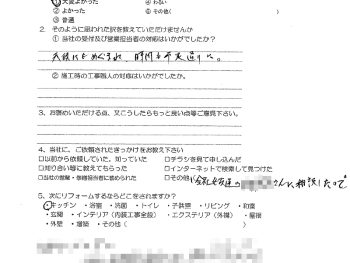 ①大変よかった ④わるい
②よかった ⑤その他(
③普通
2. そのように思われた訳を教えていただけませんか
① 当社の受付及び営業担当者の対応はいかがでしたか？
天候にもめぐまれ、時間も予定通りに。
② 施工時の工事職人の対応はいかがでしたか。
3. お褒めいただける点、又こうしたらもっと良い点等ご意見下さい。
4. 当社に、ご依頼されたきっかけをお教え下さい
□以前から依頼していた、知っていた □チラシを見て申し込んだ
□知り合い等に教えてもらった □インターネットで検索して見つけた
□当社の営業・修繕担当者に進められた □その他(会社友達の さんに相談したので
5. 次にリフォームするならどこをされますか？
・キッチン ・浴室 ・洗面 ・トイレ ・子供部 ・リビング ・和室
・玄関 ・インテリア（内装工事全般） ・エクステリア（外構） ・屋根
・外壁 ・増築 ・その他（ ）